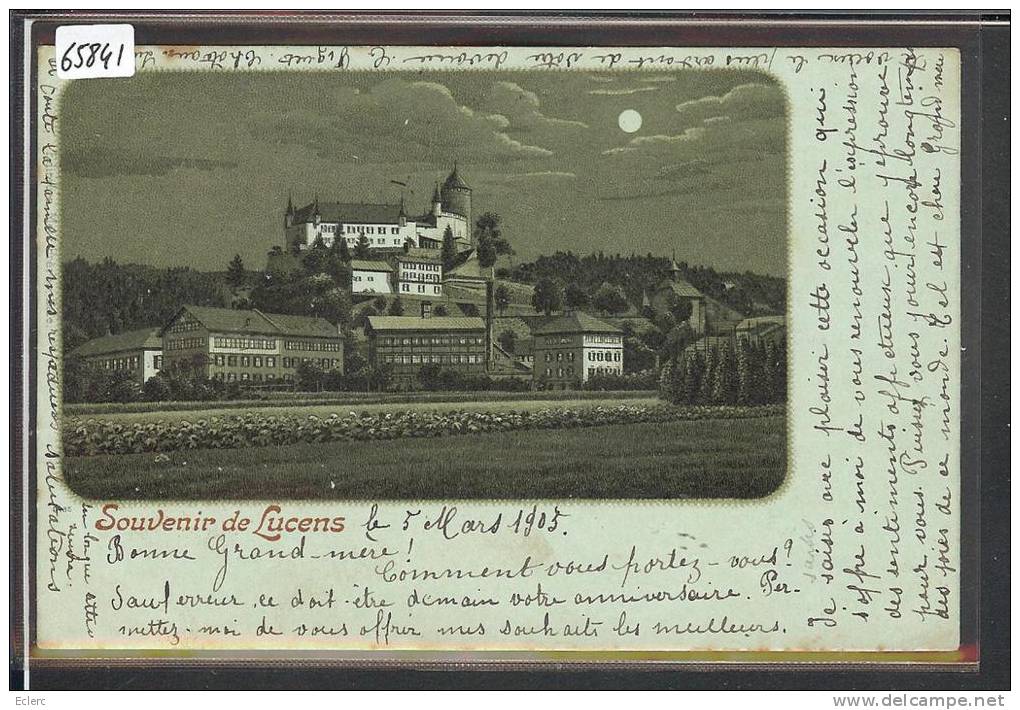 65841
Souvenir de Lucens le 5 Mars 1905.
Bonne Grand-mère!
Comment vous portez-vous?
Sauf erreur, ce doit-être demain votre anniversaire. Per-
mettez-moi de vous offrir mes souhaits les meilleurs.
Je saisis avec plaisir cette occasion qui
s'offre à moi de vous renouveler l'expression
des sentiments affectueux que j'éprouve
pour vous. Puissiez vous jouir encore longtemps
des joies de ce monde. Tel est chère Grand'mère
le plus ardent de votre
salutations
Eclerc
www.delcampe.net